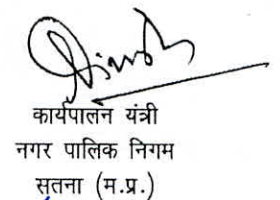 कार्यपालन यंत्री
नगर पालिक निगम
सतना (म.प्र.)